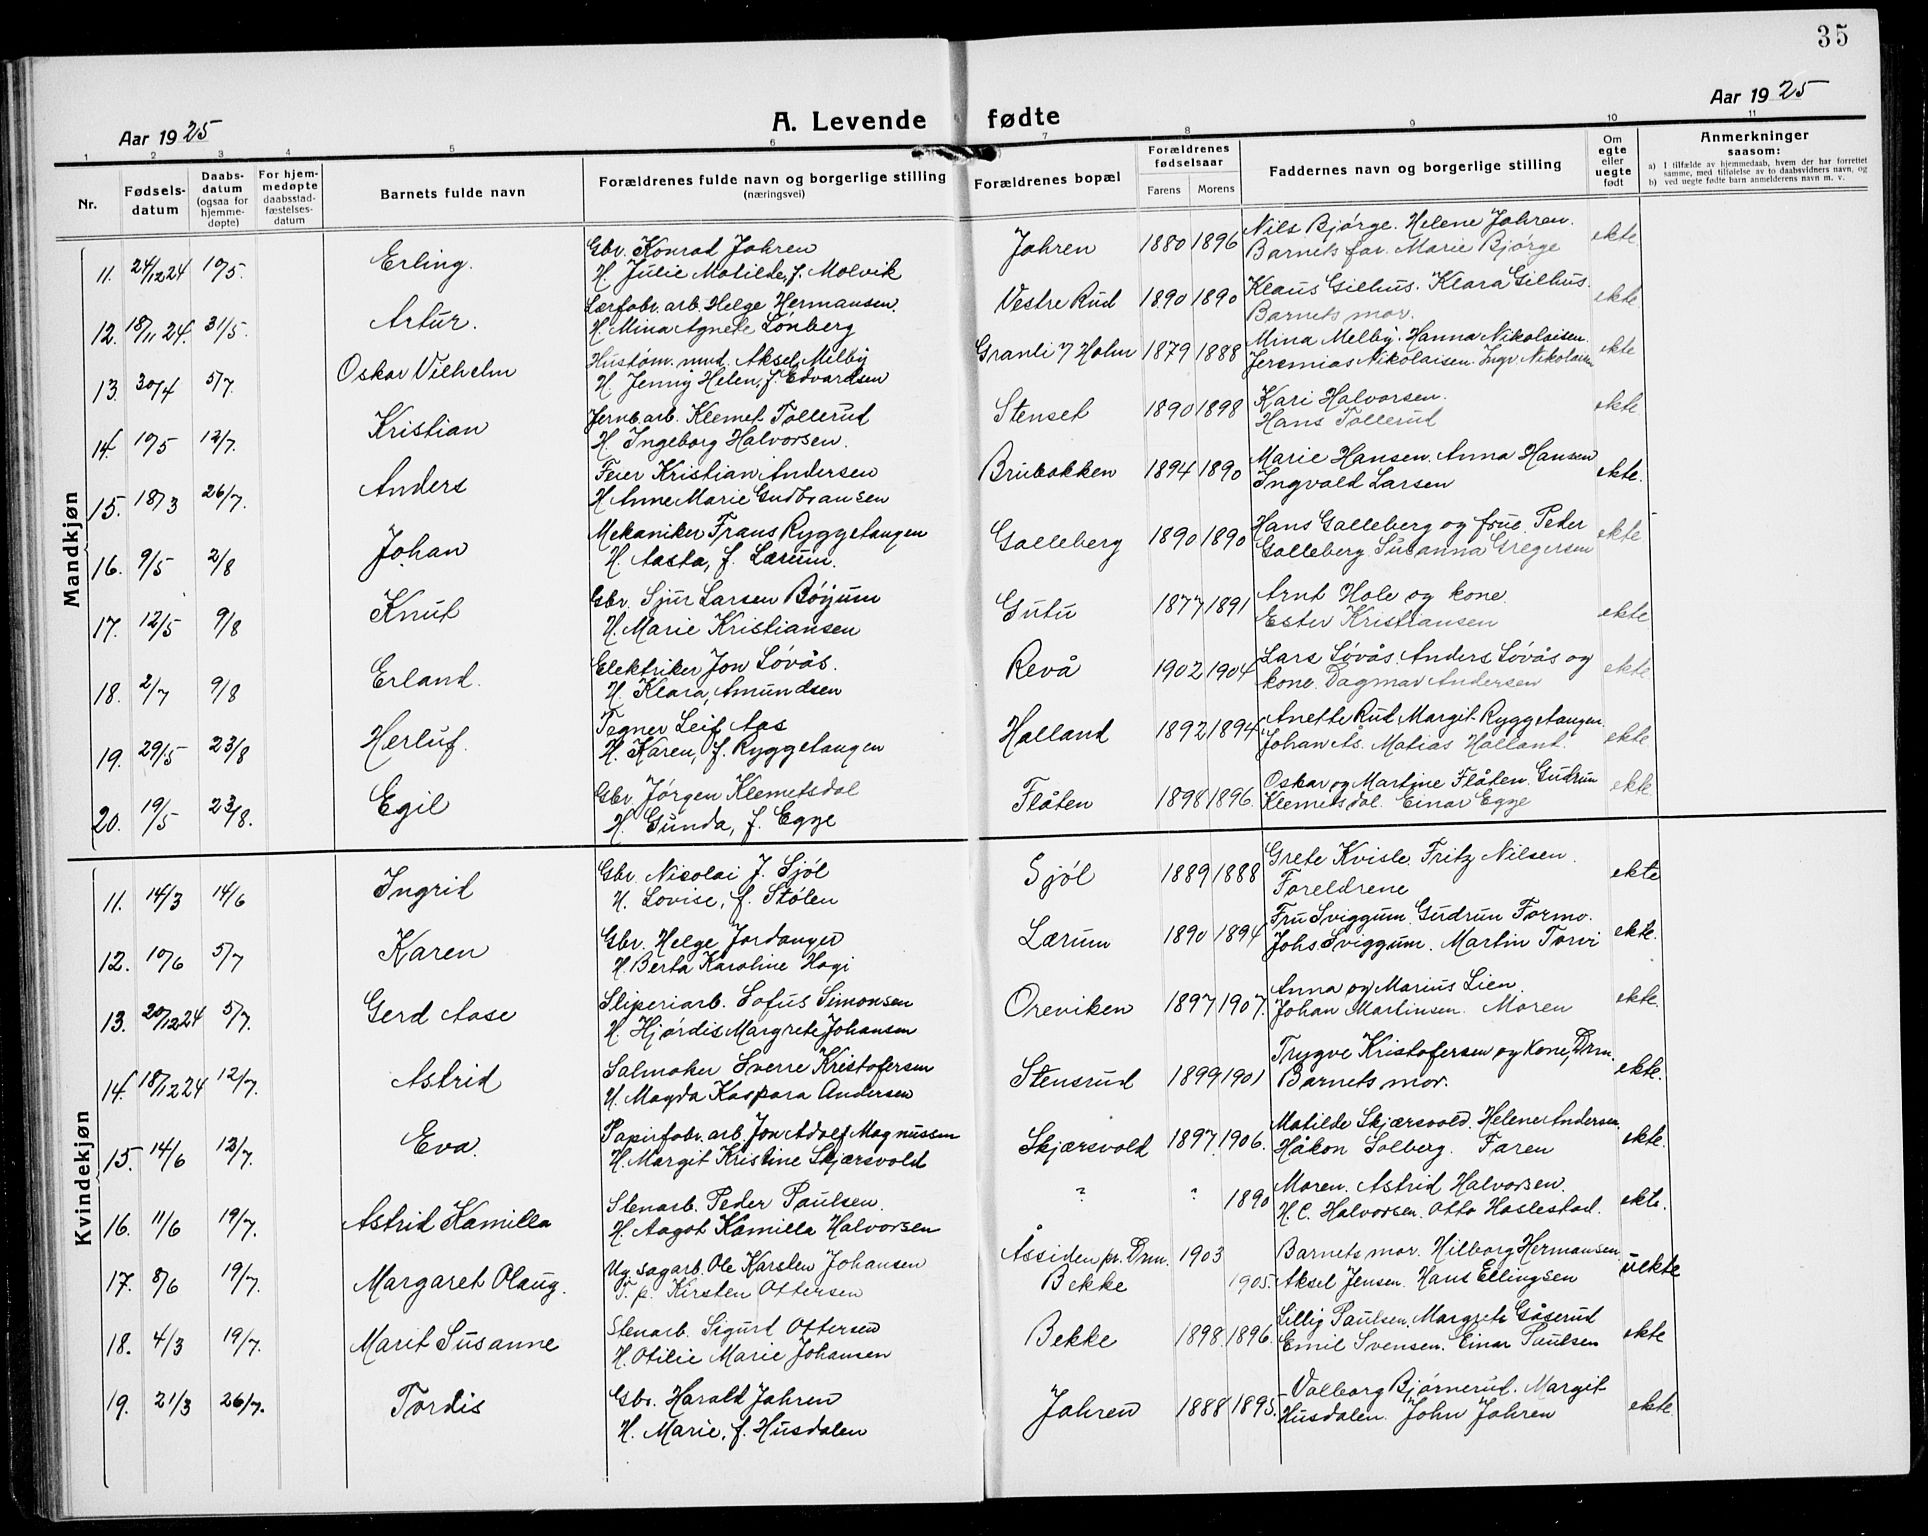 35
Aar 1925
A. Levende fødte
Aar 1925
1 2 3 4 5 6 7 8 9 10 11
Nr.
Fødsels-
datum
Daabs-
datum
(ogsaa for
hjemme-
døpte)
For hjem-
medøpte
daabsstad-
fæstelses-
datum
Barnets fulde navn
Forældrenes fulde navn og borgerlige stilling
(næringsvei)
Forældrenes bopæl
Forældrenes
fødselsaar
Farens Morens
Faddernes navn og borgerlige stilling
Om
egte
eller
uegte
født
Anmerkninger
saasom:
a) I tilfælde av hjemmedaab, hvem der har forrettet
samme, med tilføielse av to daabsvidners navn, og
b) ved uegte fødte barn anmelderens navn m. v.
Mandkjøn
11. 24/12 24 10/5. Erling. Gbr. Konrad Jahren Jahren 1880 1896 Nils Bjørge. Helene Jahren. ekte
H. Julie Matilde, f. Molvik Barnets far. Marie Bjørge
12. 18/11 24. 31/5. Artur. Lærfabr. arb. Helge Hermansen. Vestre Rud 1890 1890 Klaus Gilhus. Klara Gilhus. ekte
H. Mina Agnete Lønberg Barnets mor.
13. 30/4 5/7. Oskar Vilhelm Hustøm. mud. Aksel Milby Granli / Holm 1879 1888 Mina Melby. Hanna Nikolaisen. ekte
H. Jenny Helen, f. Edvardsen Jeremias Nikolaisen. Ingv. Nikolaisen
14. 10/5 12/7. Kristian Jernb. arb. Klemet Tollerud Stenset 1890 1898 Kari Halvorsen. ekte
H. Ingeborg Halvorsen. Hans Tollerud
15. 18/3 26/7. Anders Feier Kristian Andersen Brubakken 1894 1890 Marie Hansen. Anna Hansen ekte.
H. Anne Marie Gudbransen Ingvald Larsen
16. 9/5 2/8 Johan Mekaniker Frans Ryggetangen Galleberg 1890 1890 Hans Galleberg og frue. Peder ekte
H. Aasta, f. Lærum. Galleberg Susanna Gregersen
17. 12/5 9/8 Knut Gbr. Sjur Larsen Bøyum Gutu 1877 1891 Arnt Hole og kone. ekte
H. Marie Kristiansen Ester Kristiansen
18. 2/7 9/8 Erland. Elektriker Jon Løvås. Revå 1902 1904 Lars Løvås. Anders Løvås og ekte
H. Klara, Amundsen kone. Dagmar Andersen
19. 29/5 23/8 Herluf. Tegner Leif Aas Halland 1892 1894 Anette Rud. Margit Ryggetangen ekte
H. Karen, f. Ryggetangen Johan Ås. Matias Halland.
20. 19/5 23/8. Egil Gbr. Jørgen Klemetsdal Flåten 1898 1896. Oskar og Martine Flåten. Gudrun ekte
H. Gunda, f. Egge Klemetsdal. Einar Egge
Kvindekjøn
11. 14/3 14/6 Ingrid Gbr. Nicolai J. Sjøl Sjøl 1889 1888 Grete Kvisle. Fritz Nilsen. ekte
H. Lovise, f. Stølen Foreldrene
12. 10/6 5/7 Karen Gbr. Helge Jordanger Lærum 1890 1894 Fru Sviggum. Gudrun Formo. ekte.
H. Berta Karoline Hagi Johs Sviggum. Martin Torvi
13. 20/12 24 5/7. Gerd Aase Sliperiarb. Sofus Simonsen Oreviken 1897 1907. Anna og Marius Lien. ekte.
H. Hjørdis Margrete Johansen Johan Martinsen. Moren
14. 18/12 24 12/7. Astrid Salmaker Sverre Kristofersen Stensrud 1899 1901 Trygve Kristofersen og kone, Drm. ekte.
H. Magda Kaspara Andersen Barnets mor.
15. 14/6 12/7. Eva. Papirfabr. arb. Jon Adolf Magnussen Skjærsvold 1897. 1906. Matilde Skjærsvold. Helene Andersen. ekte.
H. Margit Kristine Skjærsvold Håkon Solberg. Faren
16. 11/6 19/7. Astrid Kamilla Stenarb. Peder Paulsen. " " 1890 Moren. Astrid Halvorsen. ekte.
H. Aagot Kamilla Halvorsen H. C. Halvorsen. Otto Haslestad.
17. 8/6 19/7. Margaret Olaug. Ug. sagarb. Ole Karsten Johansen Åssiden pr. Drm. 1903 Barnets mor. Hilborg Hermansen uekte
T. p. Kirsten Ottersen Bekke 1905. Aksel Jensen. Hans Ellingsen
18. 4/3 19/7. Marit Susanne Stenarb. Sigurd Ottersen Bekke 1898. 1896. Lilly Paulsen. Margrete Gåserud ekte
H. Otilie Marie Johansen Emil Svensen. Einar Paulsen
19. 21/3 26/7. Tordis Gbr. Harald Jahren Jahren 1888 1895. Valborg Bjørnerud. Margit ekte.
H. Marie, f. Husdalen Husdalen. John Jahren